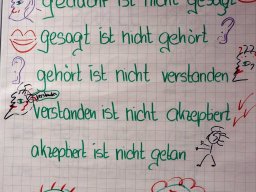 gedacht ist nicht gesagt
gesagt ist nicht gehört ?
? gehört ist nicht verstanden
verstanden ist nicht akzeptiert
akzeptiert ist nicht getan